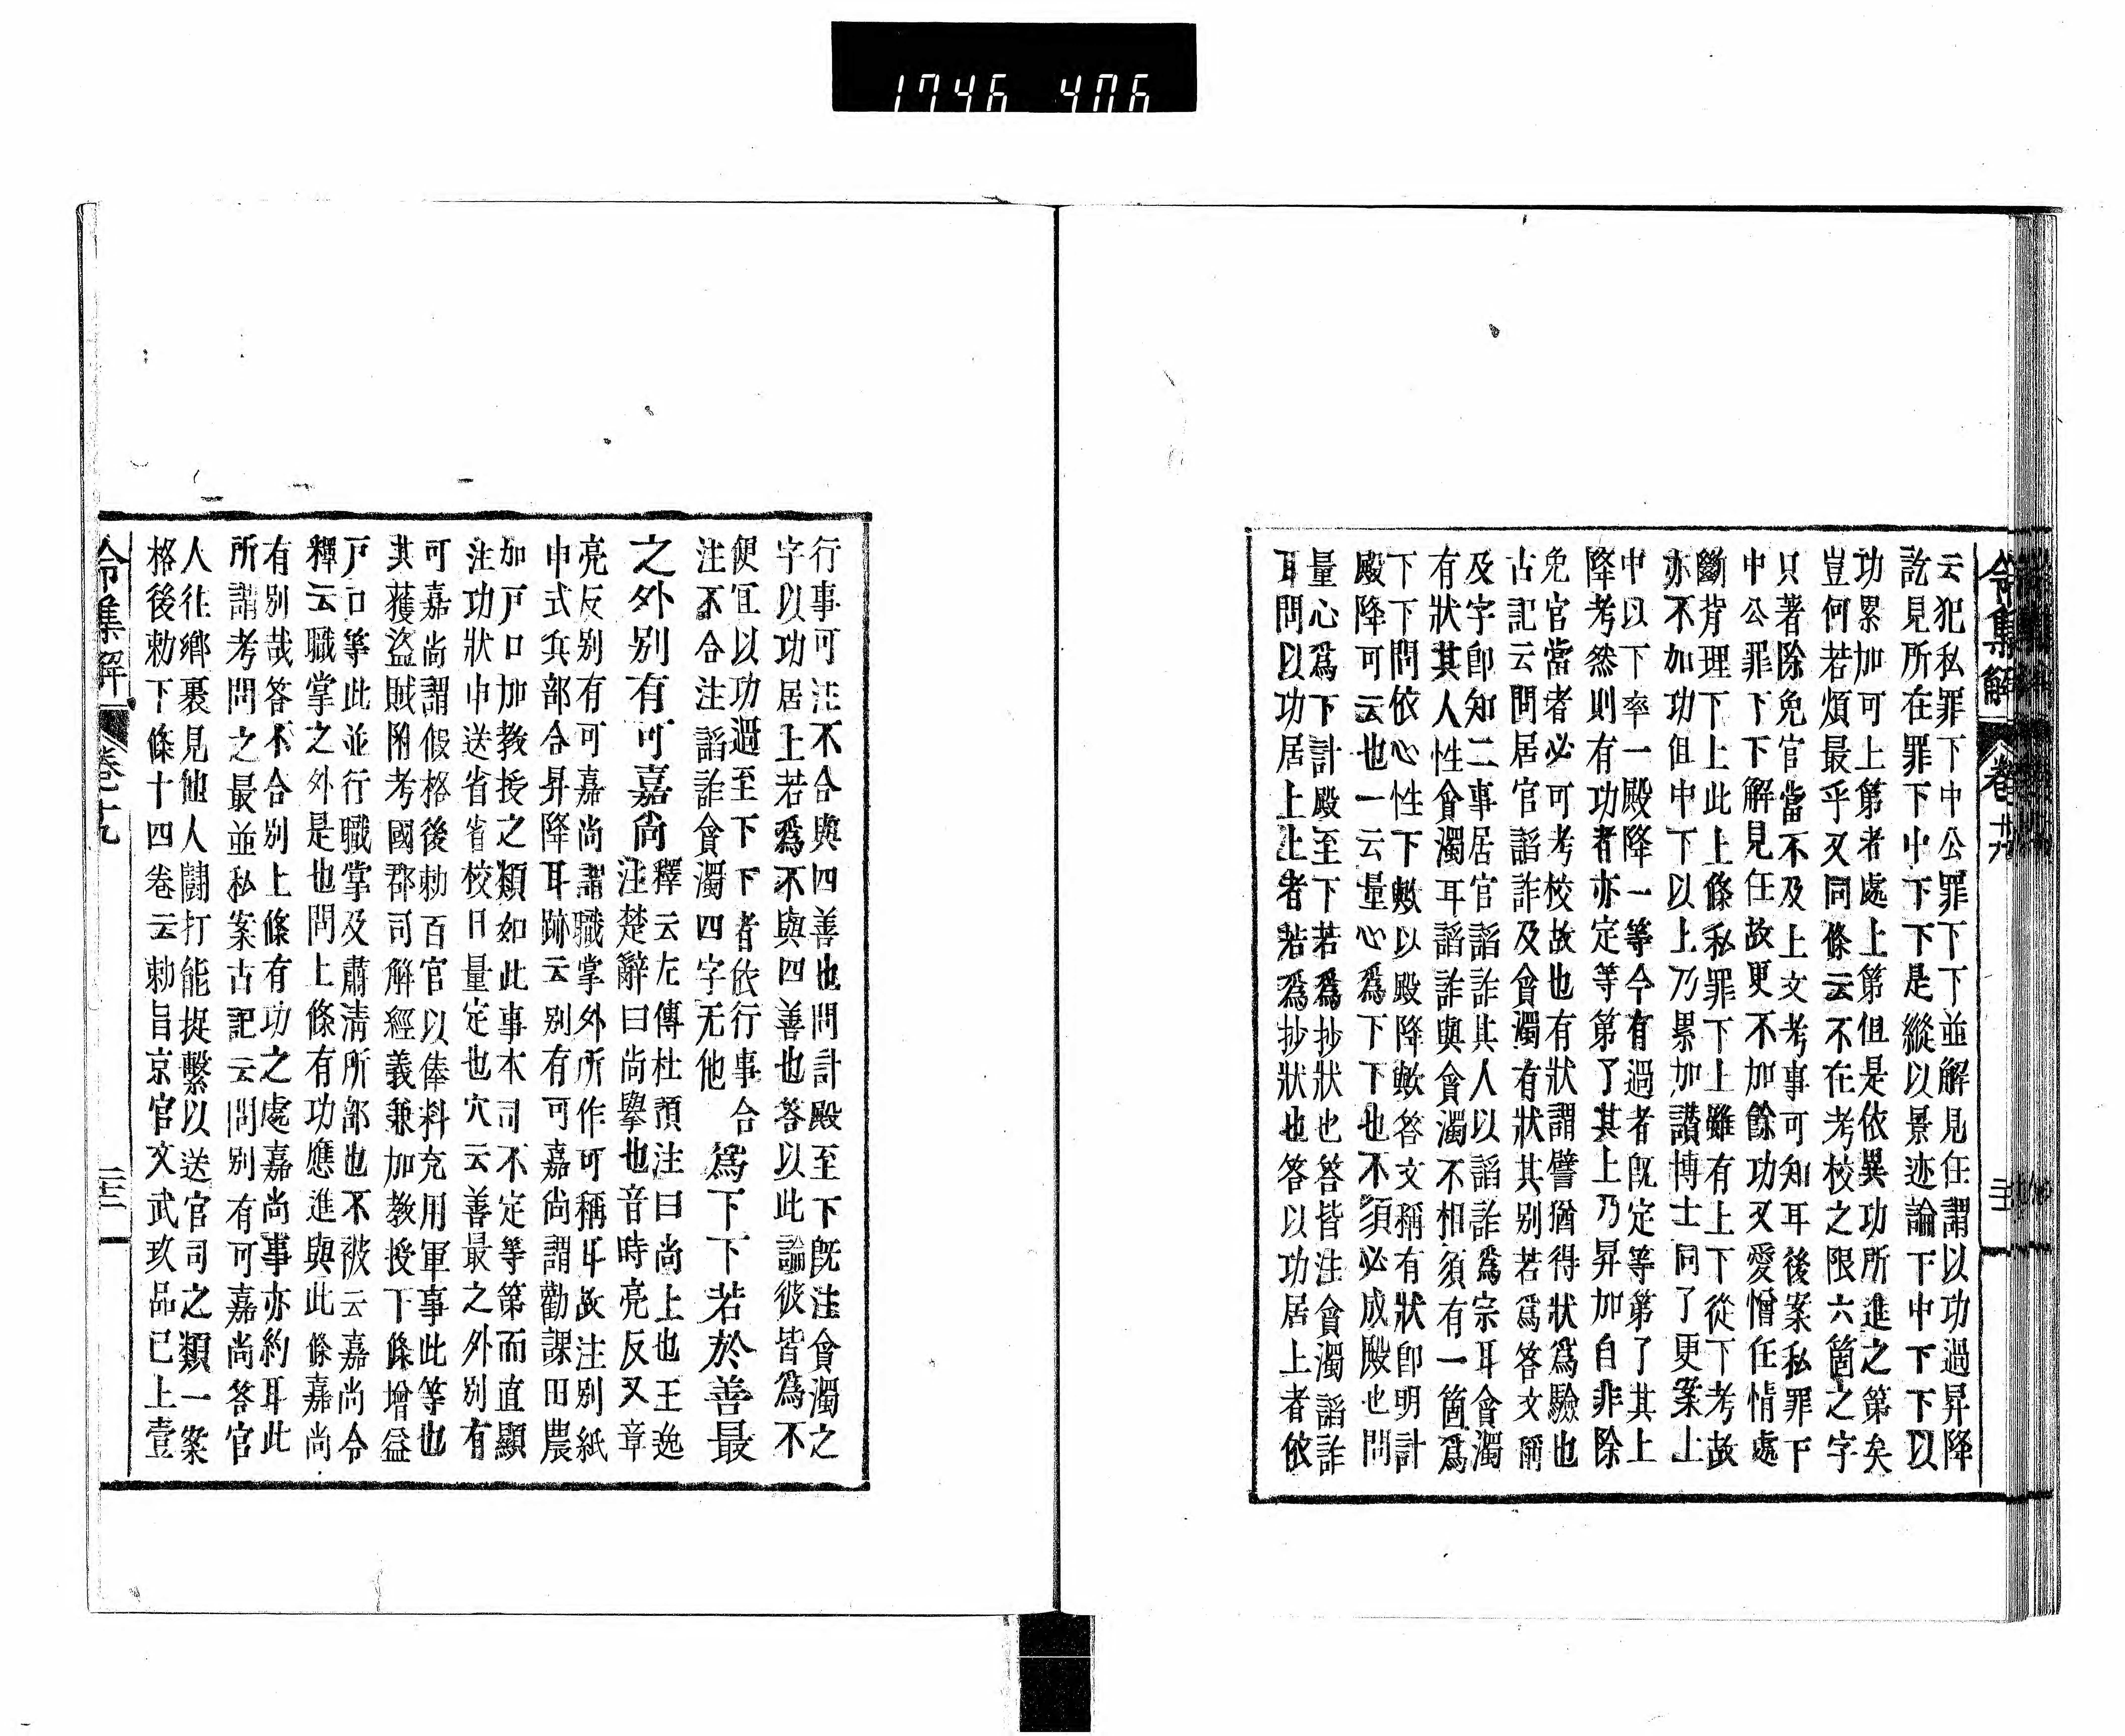 1746 406
令集解 卷十九 二十一
云犯私罪下中公罪下下並解見任謂以功過昇降
訖見所在罪下中下下是縱以景迹論下中下下以
功累加可上第者處上第但是依異功所進之第矣
豈何若煩最乎又同條云不在考校之限六箇之字
只著除免官當不及上文考事可知耳後案私罪下
中公罪下下解見任故更不加餘功又愛憎任情處
斷背理下上此上條私罪下上雖有上下從下考故
亦不加功但中下以上乃累加讃博士同了更案上
中以下率一殿降一等今有過者既定等第了其上
降考然則有功者亦定等第了其上乃昇加自非除
免官當者必可考校故也有狀謂譬猶得狀爲驗也
古記云問居官諂詐及貪濁有狀其別若爲答文稱
及字卽知二事居官諂詐詐其人以諂詐爲宗耳貪濁
有狀其人性貪濁耳諂詐與貪濁不相須有一箇爲
下下問依心性下數以殿降歟答文稱有狀卽明計
殿降可云也一云量心爲下下也不須必成殿也問
量心爲下計殿至下若爲抄狀也答皆注貪濁諂詐
耳問以功居上上者若爲抄狀也答以功居上者依
行事可注不合與四善也問計殿至下既注貪濁之
字以功居上若爲不與四善也答以此論彼皆爲不
便宜以功過至下下者依行事合
注不合注諂詐貪濁四字无他
爲下下若於善最
之外別有可嘉尚
釋云左傳杜預注曰尚上也王逸
注楚辭曰尚擧也音時亮反又章
亮反別有可嘉尚謂職掌外所作可稱耳故注別紙
申式兵部合昇降耳跡云別有可嘉尚謂勸課田農
加戸口加教授之類如此事本司不定等第而直顯
注功狀申送省省校日量定也穴云善最之外別有
可嘉尚謂假格後勅百官以俸料充用軍事此等也
其獲盜賊附考國郡司解經義兼加教授下條增益
戸口等此並行職掌及肅清所部也不被云嘉尚令
釋云職掌之外是也問上條有功應進與此條嘉尚
有別哉答不合別上條有功之處嘉尚事亦約耳此
所謂考問之最並私案古記云問別有可嘉尚答官
人往鄉裏見他人鬪打能捉繫以送官司之類一案
格後勅下條十四卷云勅旨京官文武玖品已上壹
令集解 卷十九 二十二